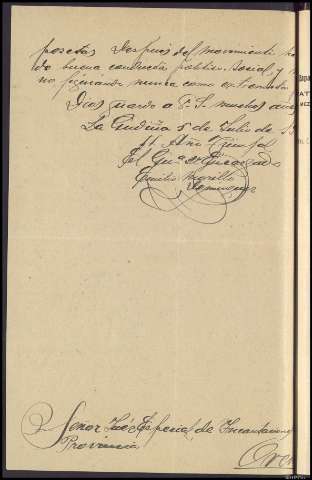 pesetas. Despues del movimiento ha
do buena conducta politico social, y
no figurando nunca como extremista
Dios guarde a V. S. muchos años
La Gudiña 5 de Julio de 19
II Año Triunfal
El Gua 2º Encargado
Emilio Morillo
Dominguez
Señor Juez Especial de Incautaciones
Provincia
Oren